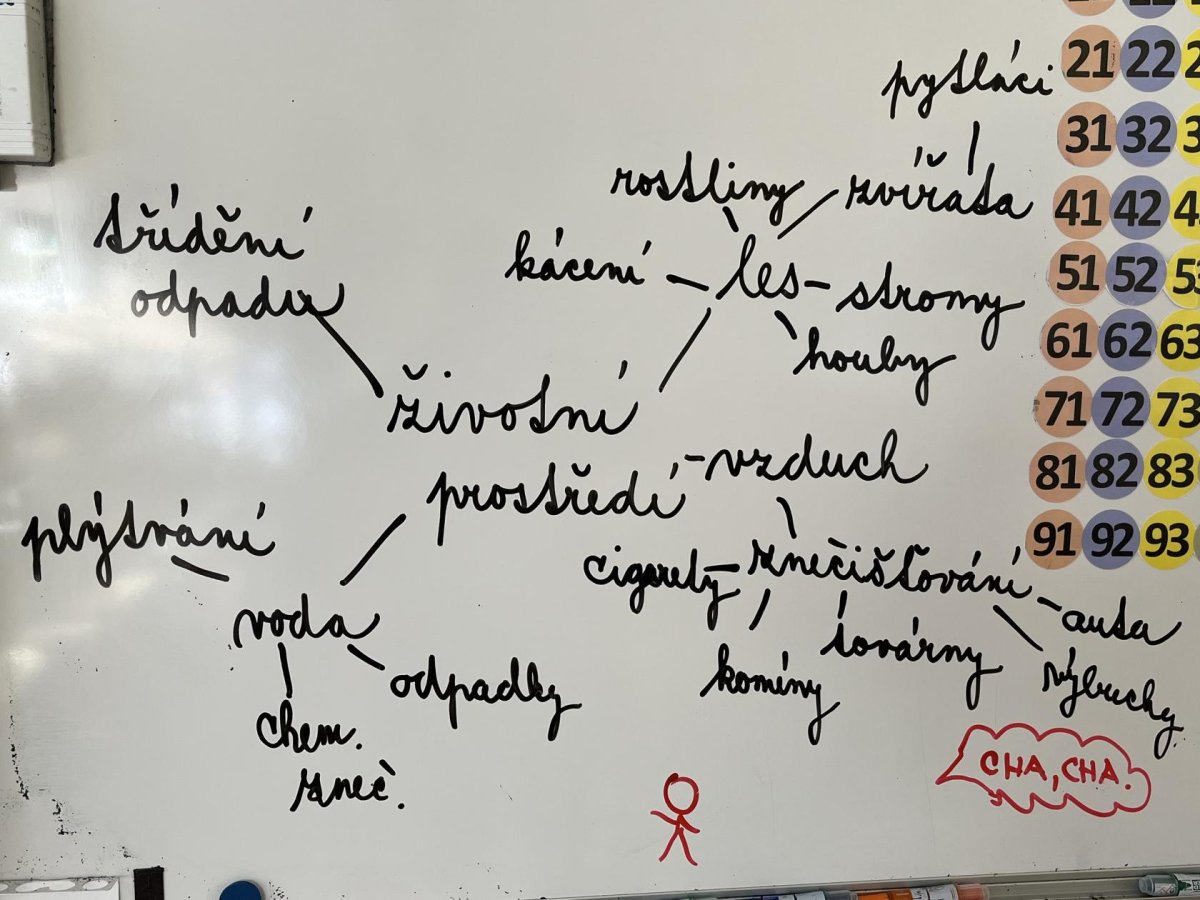 21 22 2
pytláci
31 32 3
rostliny zvířata
41 42 4
třídění
odpadu
kácení les stromy
51 52 53
houby
61 62 63
životní
prostředí
71 72 73
vzduch
81 82 83
plýtvání
91 92 93
cigarety znečišťování
auta
voda
továrny
výbuchy
komíny
odpadky
chem.
zneč.
CHA, CHA.